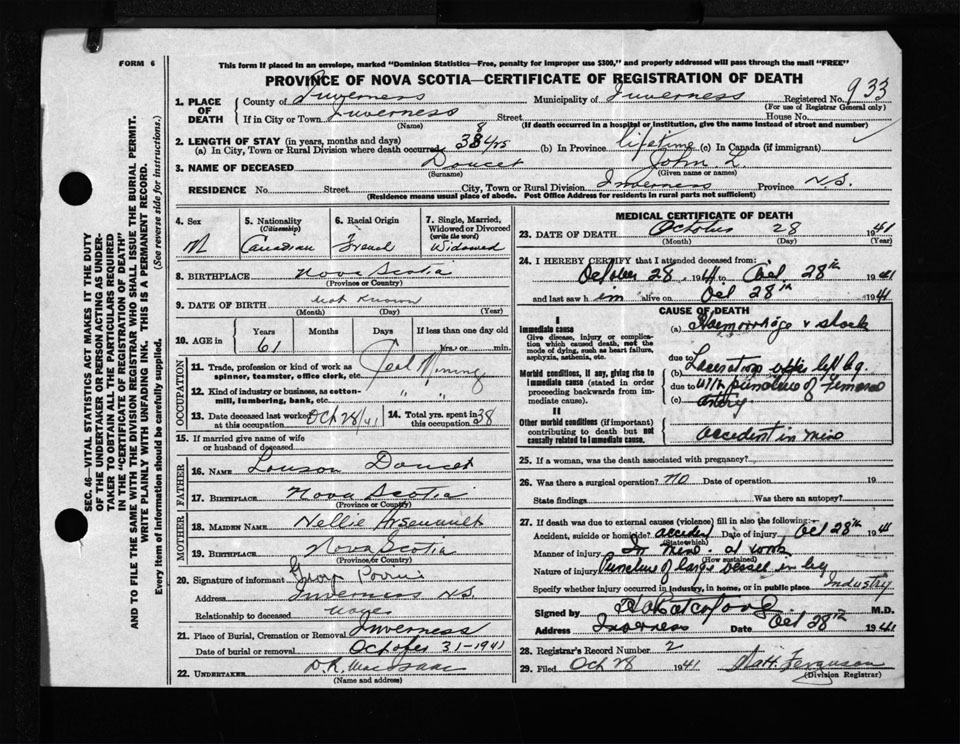 FORM 6
This form if placed in an envelope, marked "Dominion Statistics—Free, penalty for improper use $300," and properly addressed will pass through the mail "FREE"
PROVINCE OF NOVA SCOTIA—CERTIFICATE OF REGISTRATION OF DEATH
1. PLACE OF DEATH County of Inverness Municipality of Inverness Registered No. 933
(For use of Registrar General only)
If in City or Town Inverness Street House No.
(Name) (If death occurred in a hospital or institution, give the name instead of street and number)
2. LENGTH OF STAY (in years, months and days)
(a) In City, Town or Rural Division where death occurred 38 yrs (b) In Province lifetime (c) In Canada (if immigrant)
3. NAME OF DECEASED Doucet John L.
(Surname) (Given name or names)
RESIDENCE No. Street City, Town or Rural Division Inverness Province N.S.
(Residence means usual place of abode. Post Office Address for residents in rural parts not sufficient)
SEC. 46—VITAL STATISTICS ACT MAKES IT THE DUTY
OF THE UNDERTAKER OR PERSON ACTING AS UNDER-
TAKER TO OBTAIN ALL THE PARTICULARS REQUIRED
IN THE "CERTIFICATE OF REGISTRATION OF DEATH"
AND TO FILE THE SAME WITH THE DIVISION REGISTRAR WHO SHALL ISSUE THE BURIAL PERMIT.
WRITE PLAINLY WITH UNFADING INK. THIS IS A PERMANENT RECORD.
Every item of Information should be carefully supplied. (See reverse side for instructions.)
4. Sex M
5. Nationality (Citizenship) Canadian
6. Racial Origin French
7. Single, Married, Widowed or Divorced (write the word) Widowed
8. BIRTHPLACE Nova Scotia
(Province or Country)
9. DATE OF BIRTH not Known
(Month) (Day) (Year)
10. AGE in Years 61 Months Days If less than one day old hrs. or min.
OCCUPATION
11. Trade, profession or kind of work as spinner, teamster, office clerk, etc. Mining
12. Kind of industry or business, as cotton-mill, lumbering, bank, etc. " "
13. Date deceased last worked at this occupation Oct 28/41
14. Total yrs. spent in this occupation 38
15. If married give name of wife or husband of deceased
FATHER
16. NAME Doucet
17. BIRTHPLACE Nova Scotia
(Province or Country)
MOTHER
18. MAIDEN NAME Nellie Arsenault
19. BIRTHPLACE Nova Scotia
(Province or Country)
20. Signature of informant
Address Inverness N.S.
Relationship to deceased
21. Place of Burial, Cremation or Removal Inverness
Date of burial or removal October 31-1941
22. UNDERTAKER D.R. MacIsaac
(Name and address)
MEDICAL CERTIFICATE OF DEATH
23. DATE OF DEATH October 28 1941
(Month) (Day) (Year)
24. I HEREBY CERTIFY that I attended deceased from:
October 28 1941 to Oct 28th 1941
and last saw him alive on Oct 28th 1941
CAUSE OF DEATH
I
Immediate cause
Give disease, injury or complication which caused death, not the mode of dying, such as heart failure, asphyxia, asthenia, etc.
(a) Haemorrhage & shock
due to
Morbid conditions, if any, giving rise to immediate cause (stated in order proceeding backwards from immediate cause).
(b) Laceration upper left leg
due to with puncture of femoral
(c) artery
II
Other morbid conditions (if important) contributing to death but not causally related to immediate cause.
accident in mine
25. If a woman, was the death associated with pregnancy?
26. Was there a surgical operation? no Date of operation 19
State findings Was there an autopsy?
27. If death was due to external causes (violence) fill in also the following:—
Accident, suicide or homicide? accident Date of injury Oct 28th 1941
(State which)
Manner of injury In mine - at work
(How sustained)
Nature of injury Puncture of large vessel in leg
Specify whether injury occurred in industry, in home, or in public place Industry
Signed by M.D.
Address Inverness Date Oct 28th 1941
28. Registrar's Record Number 2
29. Filed Oct 28 1941 Ferguson
(Division Registrar)